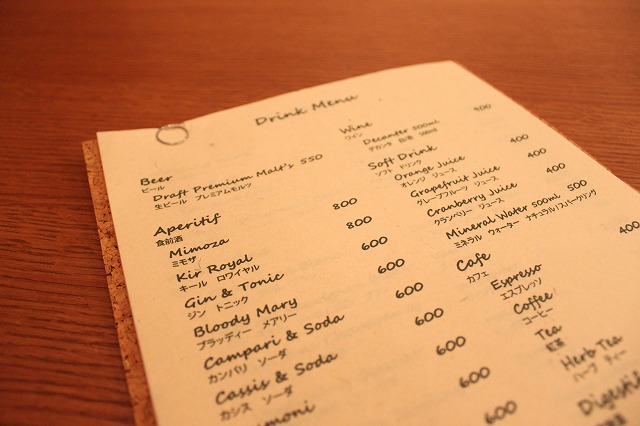 Drink Menu
Beer
ビール
Draft Premium Malt's 550
生ビール プレミアムモルツ
Aperitif
食前酒
Mimoza 800
ミモザ
Kir Royal 800
キール ロワイヤル
Gin & Tonic 600
ジン トニック
Bloody Mary 600
ブラッディー メアリー
Campari & Soda 600
カンパリ ソーダ
Cassis & Soda 600
カシス ソーダ
moni 600
600
600
Wine
ワイン
Decanter 500ml 400
デカンタ
Soft Drink
ソフト ドリンク
Orange Juice 400
オレンジ ジュース
Grapefruit Juice 400
グレープフルーツ ジュース
Cranberry Juice 400
クランベリー ジュース
Mineral Water 500ml 500
ミネラル ウォーター ナチュラル/スパークリング
Cafe
カフェ
Espresso 400
エスプレッソ
Coffee
コーヒー
Tea
紅茶
Herb Tea
ハーブ ティー
Digesti